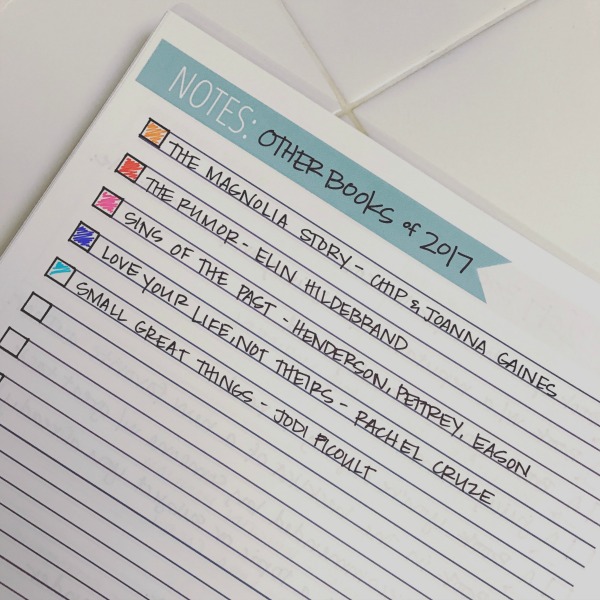 NOTES: OTHER BOOKS of 2017
THE MAGNOLIA STORY - CHIP & JOANNA GAINES
THE RUMOR - ELIN HILDEBRAND
SINS OF THE PAST - HENDERSON, PETTREY, EASON
LOVE YOUR LIFE, NOT THEIRS - RACHEL CRUZE
SMALL GREAT THINGS - JODI PICOULT